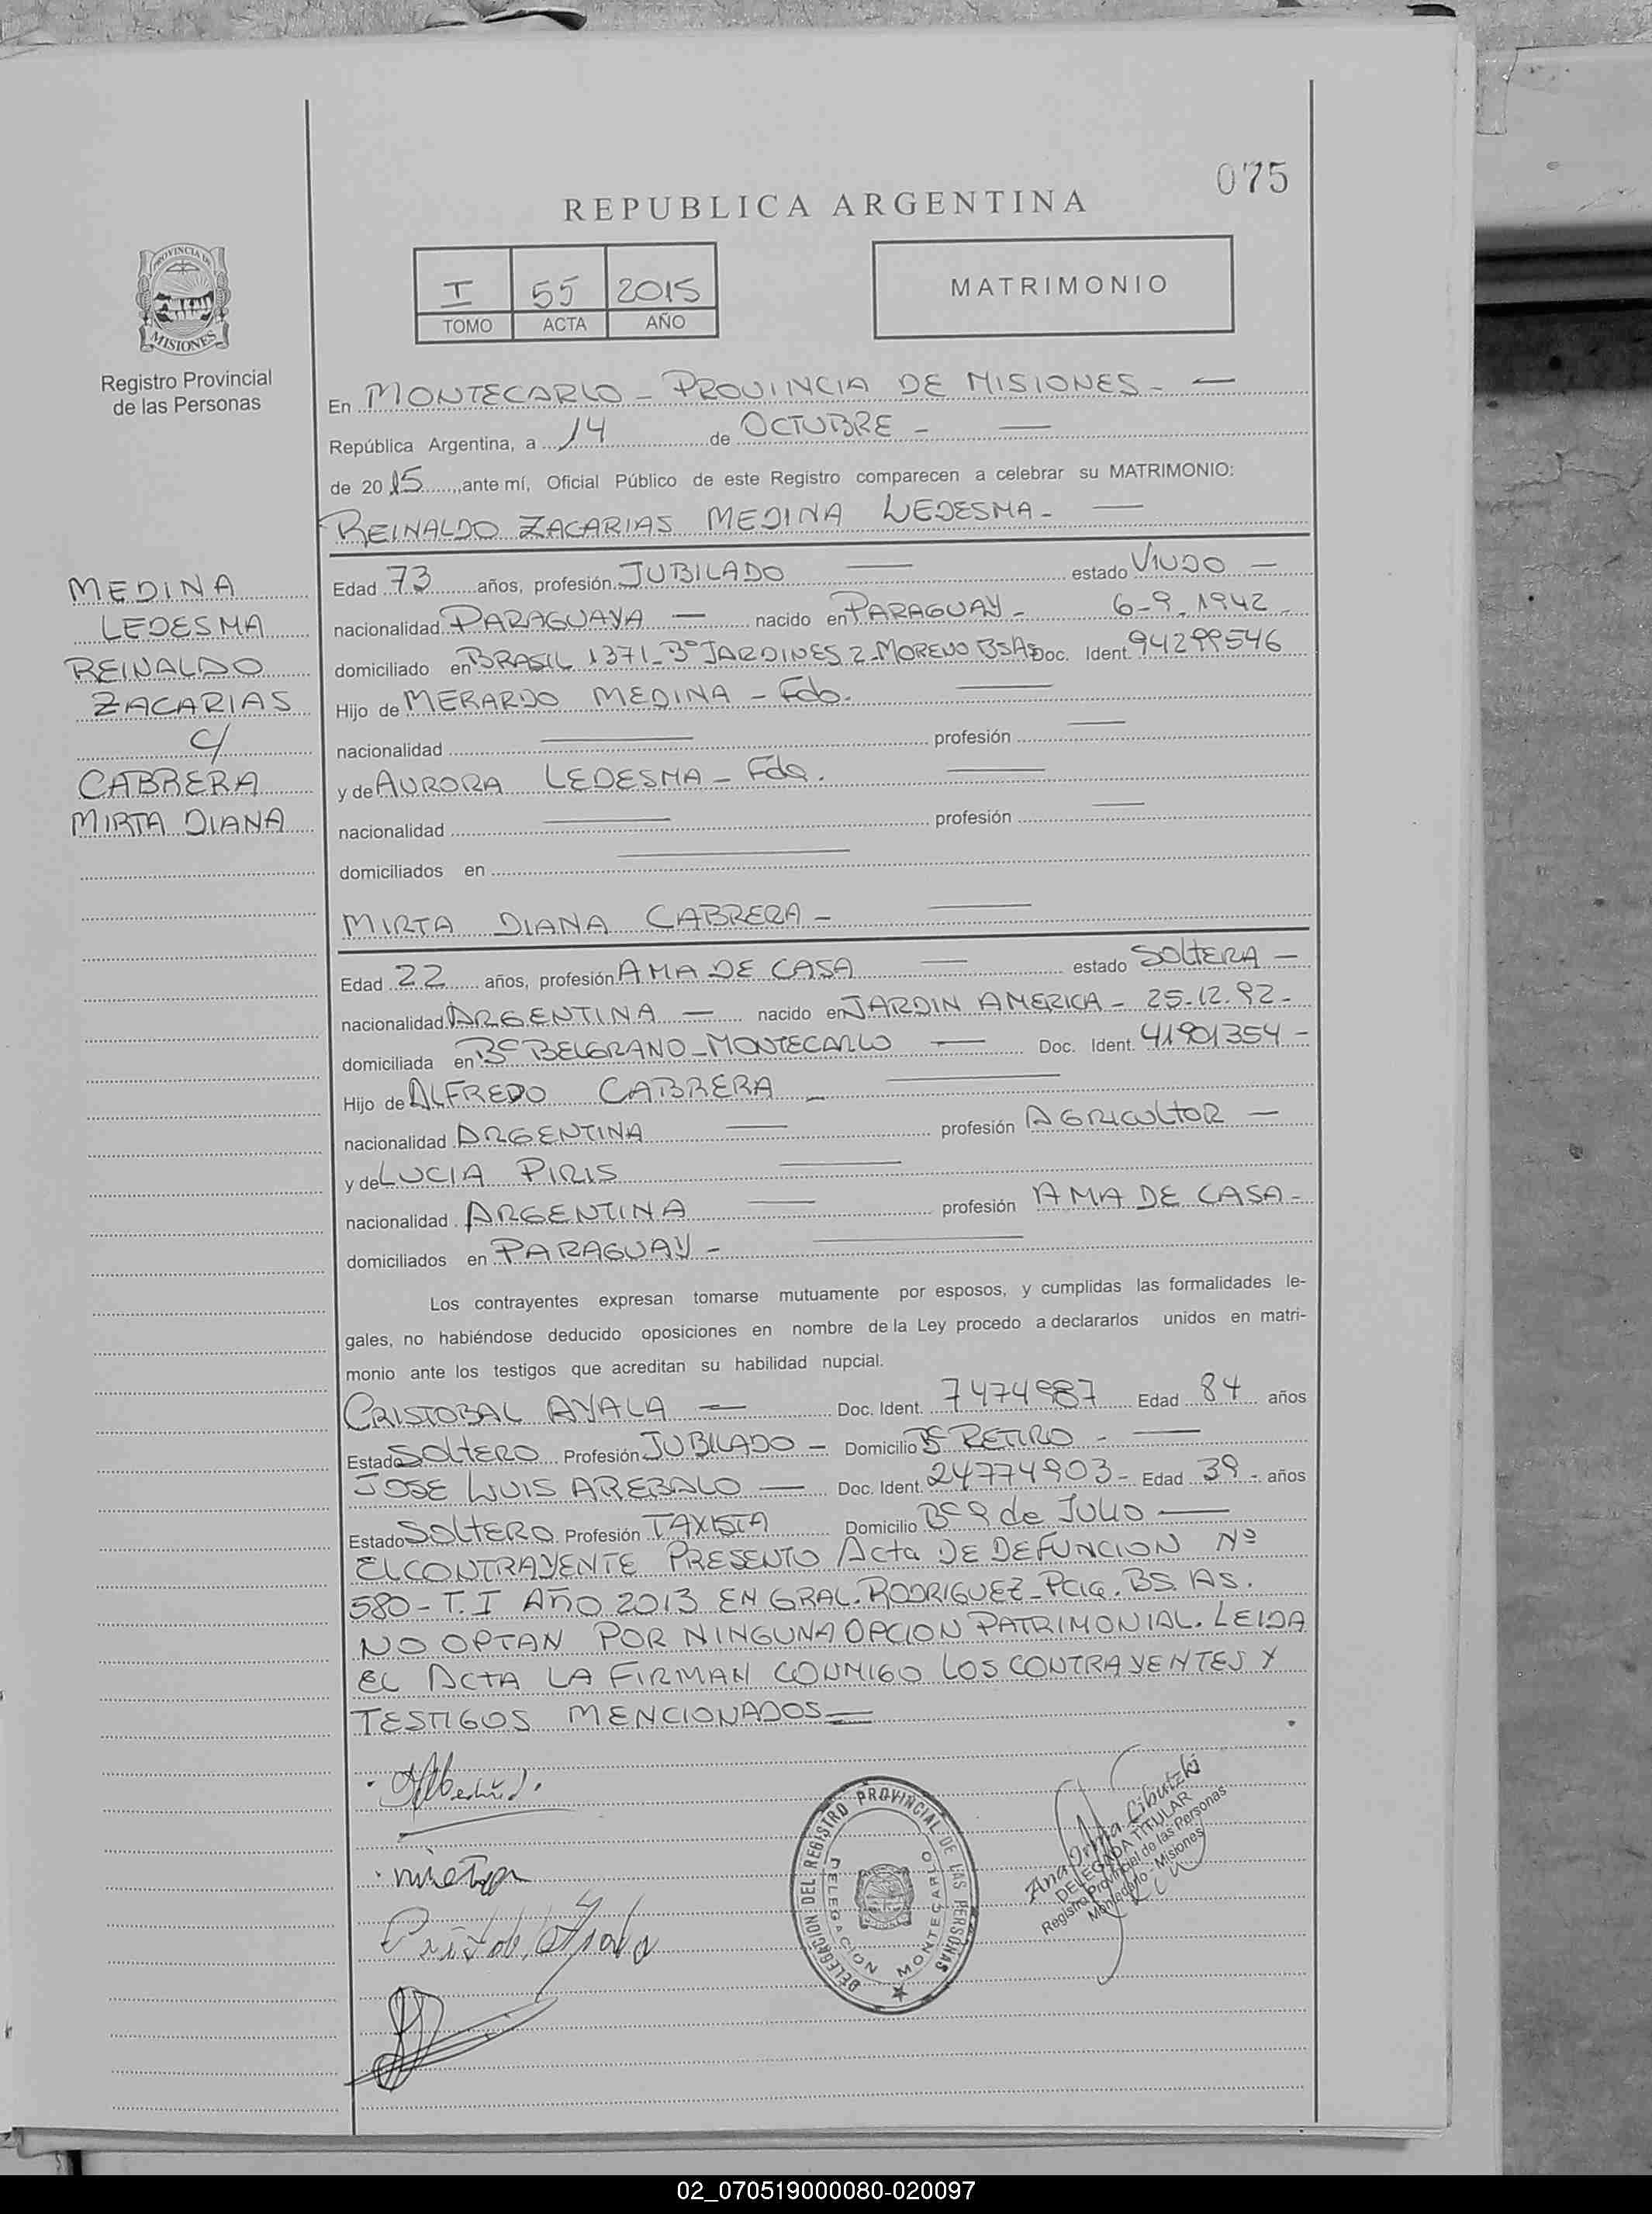 075
REPUBLICA ARGENTINA
PROVINCIA DE
MISIONES
Registro Provincial
de las Personas
I 55 2015
TOMO ACTA AÑO
MATRIMONIO
En MONTECARLO - PROVINCIA DE MISIONES -
República Argentina, a 14 de OCTUBRE -
de 2015, ante mí, Oficial Público de este Registro comparecen a celebrar su MATRIMONIO:
REINALDO ZACARIAS MEDINA LEDESMA -
MEDINA
LEDESMA
REINALDO
ZACARIAS
C/
CABRERA
MIRTA DIANA
Edad 73 años, profesión JUBILADO estado VIUDO -
nacionalidad PARAGUAYA - nacido en PARAGUAY - 6-9-1942 -
domiciliado en BRASIL 1371-Bº JARDINES 2-MORENO BSAS Doc. Ident. 94299546
Hijo de MERARDO MEDINA - Fdo.
nacionalidad profesión
y de AURORA LEDESMA - Fda.
nacionalidad profesión
domiciliados en
MIRTA DIANA CABRERA -
Edad 22 años, profesión AMA DE CASA estado SOLTERA -
nacionalidad ARGENTINA - nacido en JARDIN AMERICA - 25-12-92 -
domiciliada en Bº BELGRANO - MONTECARLO Doc. Ident. 41901354 -
Hijo de ALFREDO CABRERA -
nacionalidad ARGENTINA profesión AGRICULTOR -
y de LUCIA PIRIS
nacionalidad ARGENTINA profesión AMA DE CASA -
domiciliados en PARAGUAY -
Los contrayentes expresan tomarse mutuamente por esposos, y cumplidas las formalidades le-
gales, no habiéndose deducido oposiciones en nombre de la Ley procedo a declararlos unidos en matri-
monio ante los testigos que acreditan su habilidad nupcial.
CRISTOBAL AYALA - Doc. Ident. 7474987 Edad 84 años
Estado SOLTERO Profesión JUBILADO - Domicilio Bº RETIRO -
JOSE LUIS AREBALO - Doc. Ident. 24774903 - Edad 39 - años
Estado SOLTERO Profesión TAXISTA Domicilio Bº 9 de JULIO -
EL CONTRAYENTE PRESENTO ACTA DE DEFUNCION Nº
580 - T. I AÑO 2013 EN GRAL. RODRIGUEZ - PCIA. BS. AS.
NO OPTAN POR NINGUNA OPCION PATRIMONIAL. LEIDA
EL ACTA LA FIRMAN CONMIGO LOS CONTRAYENTES Y
TESTIGOS MENCIONADOS
DELEGACION DEL REGISTRO PROVINCIAL DE LAS PERSONAS
DELEGACION MONTECARLO
Ana Irma Libutzki
DELEGADA TITULAR
Registro Provincial de las Personas
Montecarlo - Misiones
02_070519000080-020097